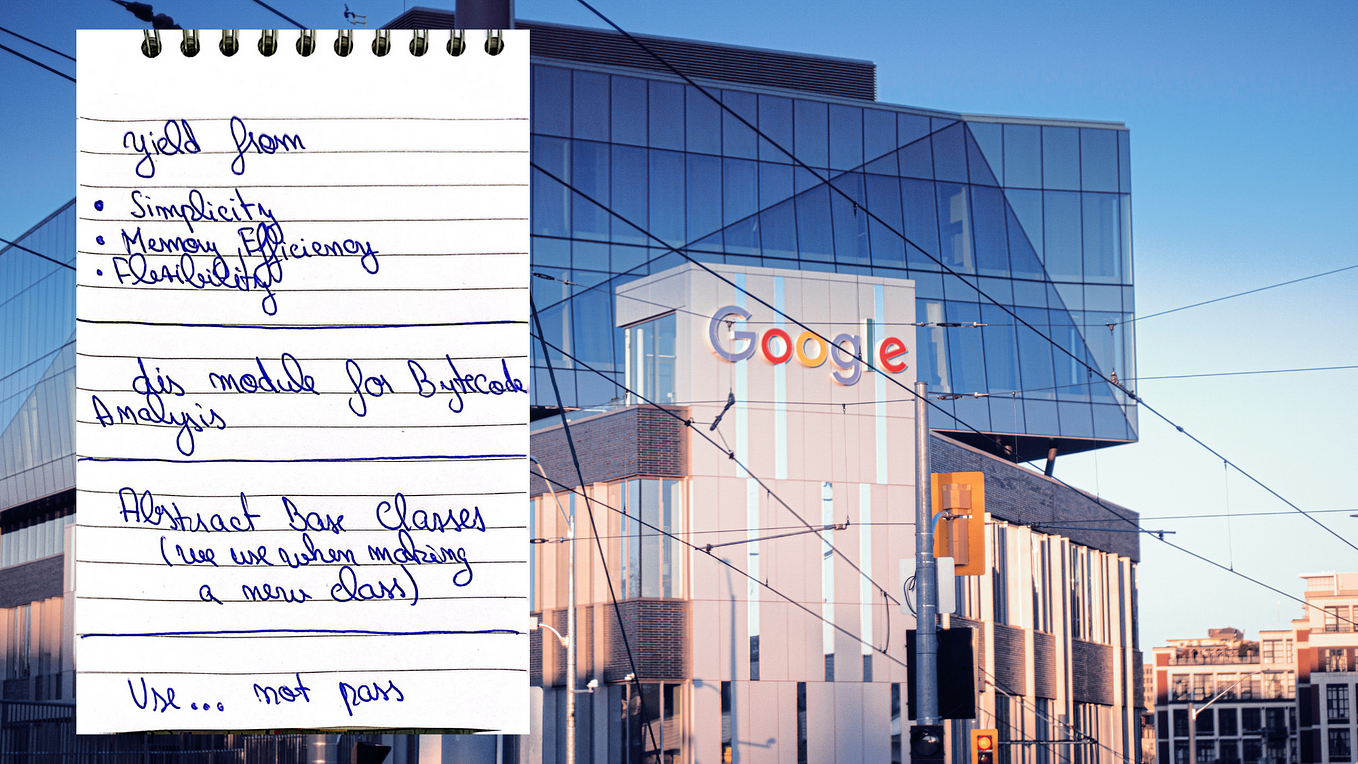 yield from
• Simplicity
• Memory Efficiency
• Flexibility
dis module for Bytecode
Analysis
Abstract Base Classes
(we use when making
a new class)
Use... not pass
Google